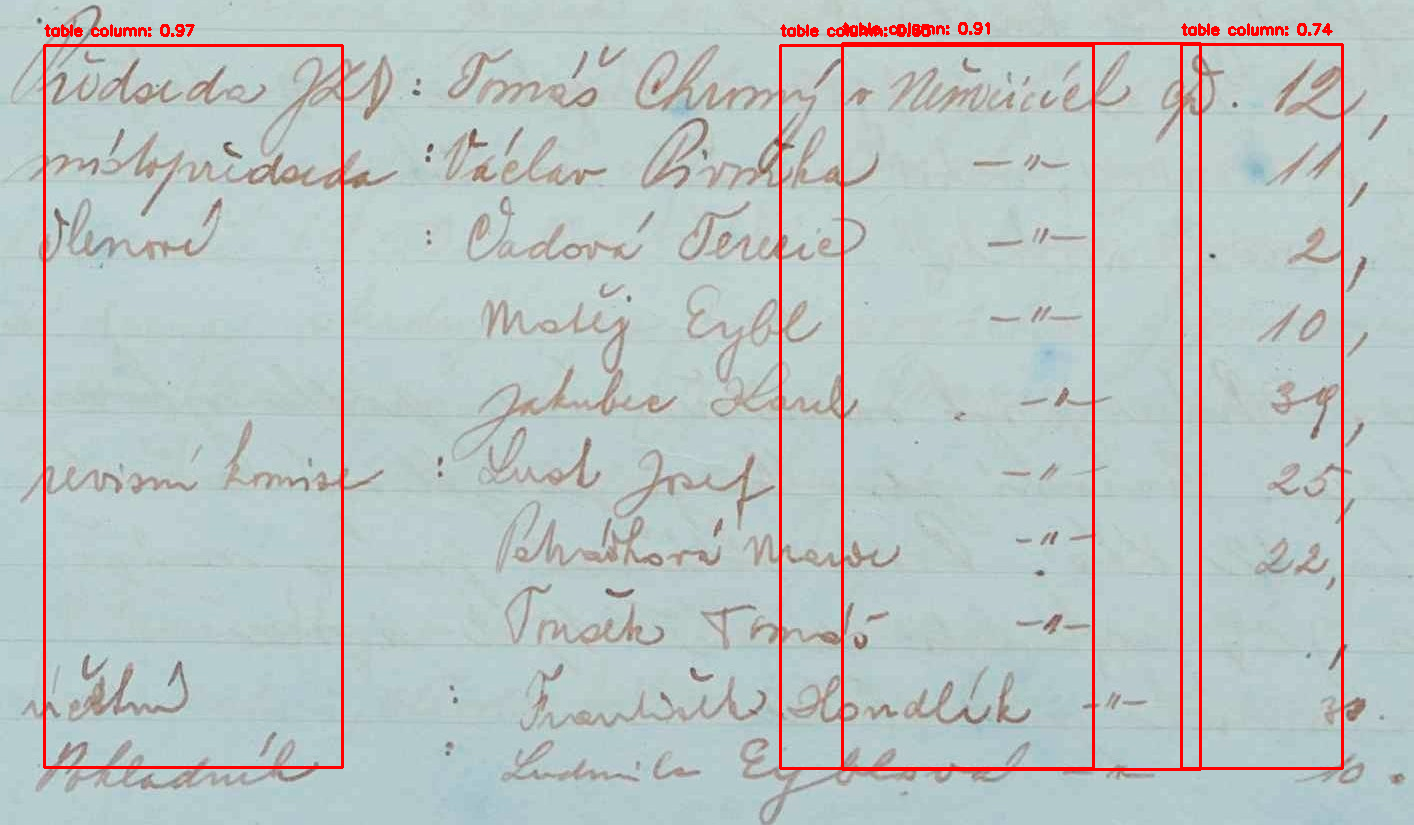 table column: 0.97 table column: 0.91 table column: 0.74
Předseda JZD : Tomáš Chromý v Němčicích čp. 12,
místopředseda : Václav Pivoňka —"— 11,
členové : Vadová Terezie —"— 2,
Matěj Eybl —"— 10,
Jakubec Karel —"— 39,
revisní komise : Lust Josef —"— 25,
Marie —"— 22,
Toušek Tomáš —"— ,
účetní : František Hondlík —"— 30.
Pokladník : Ludmila Eyblová —"— 10.